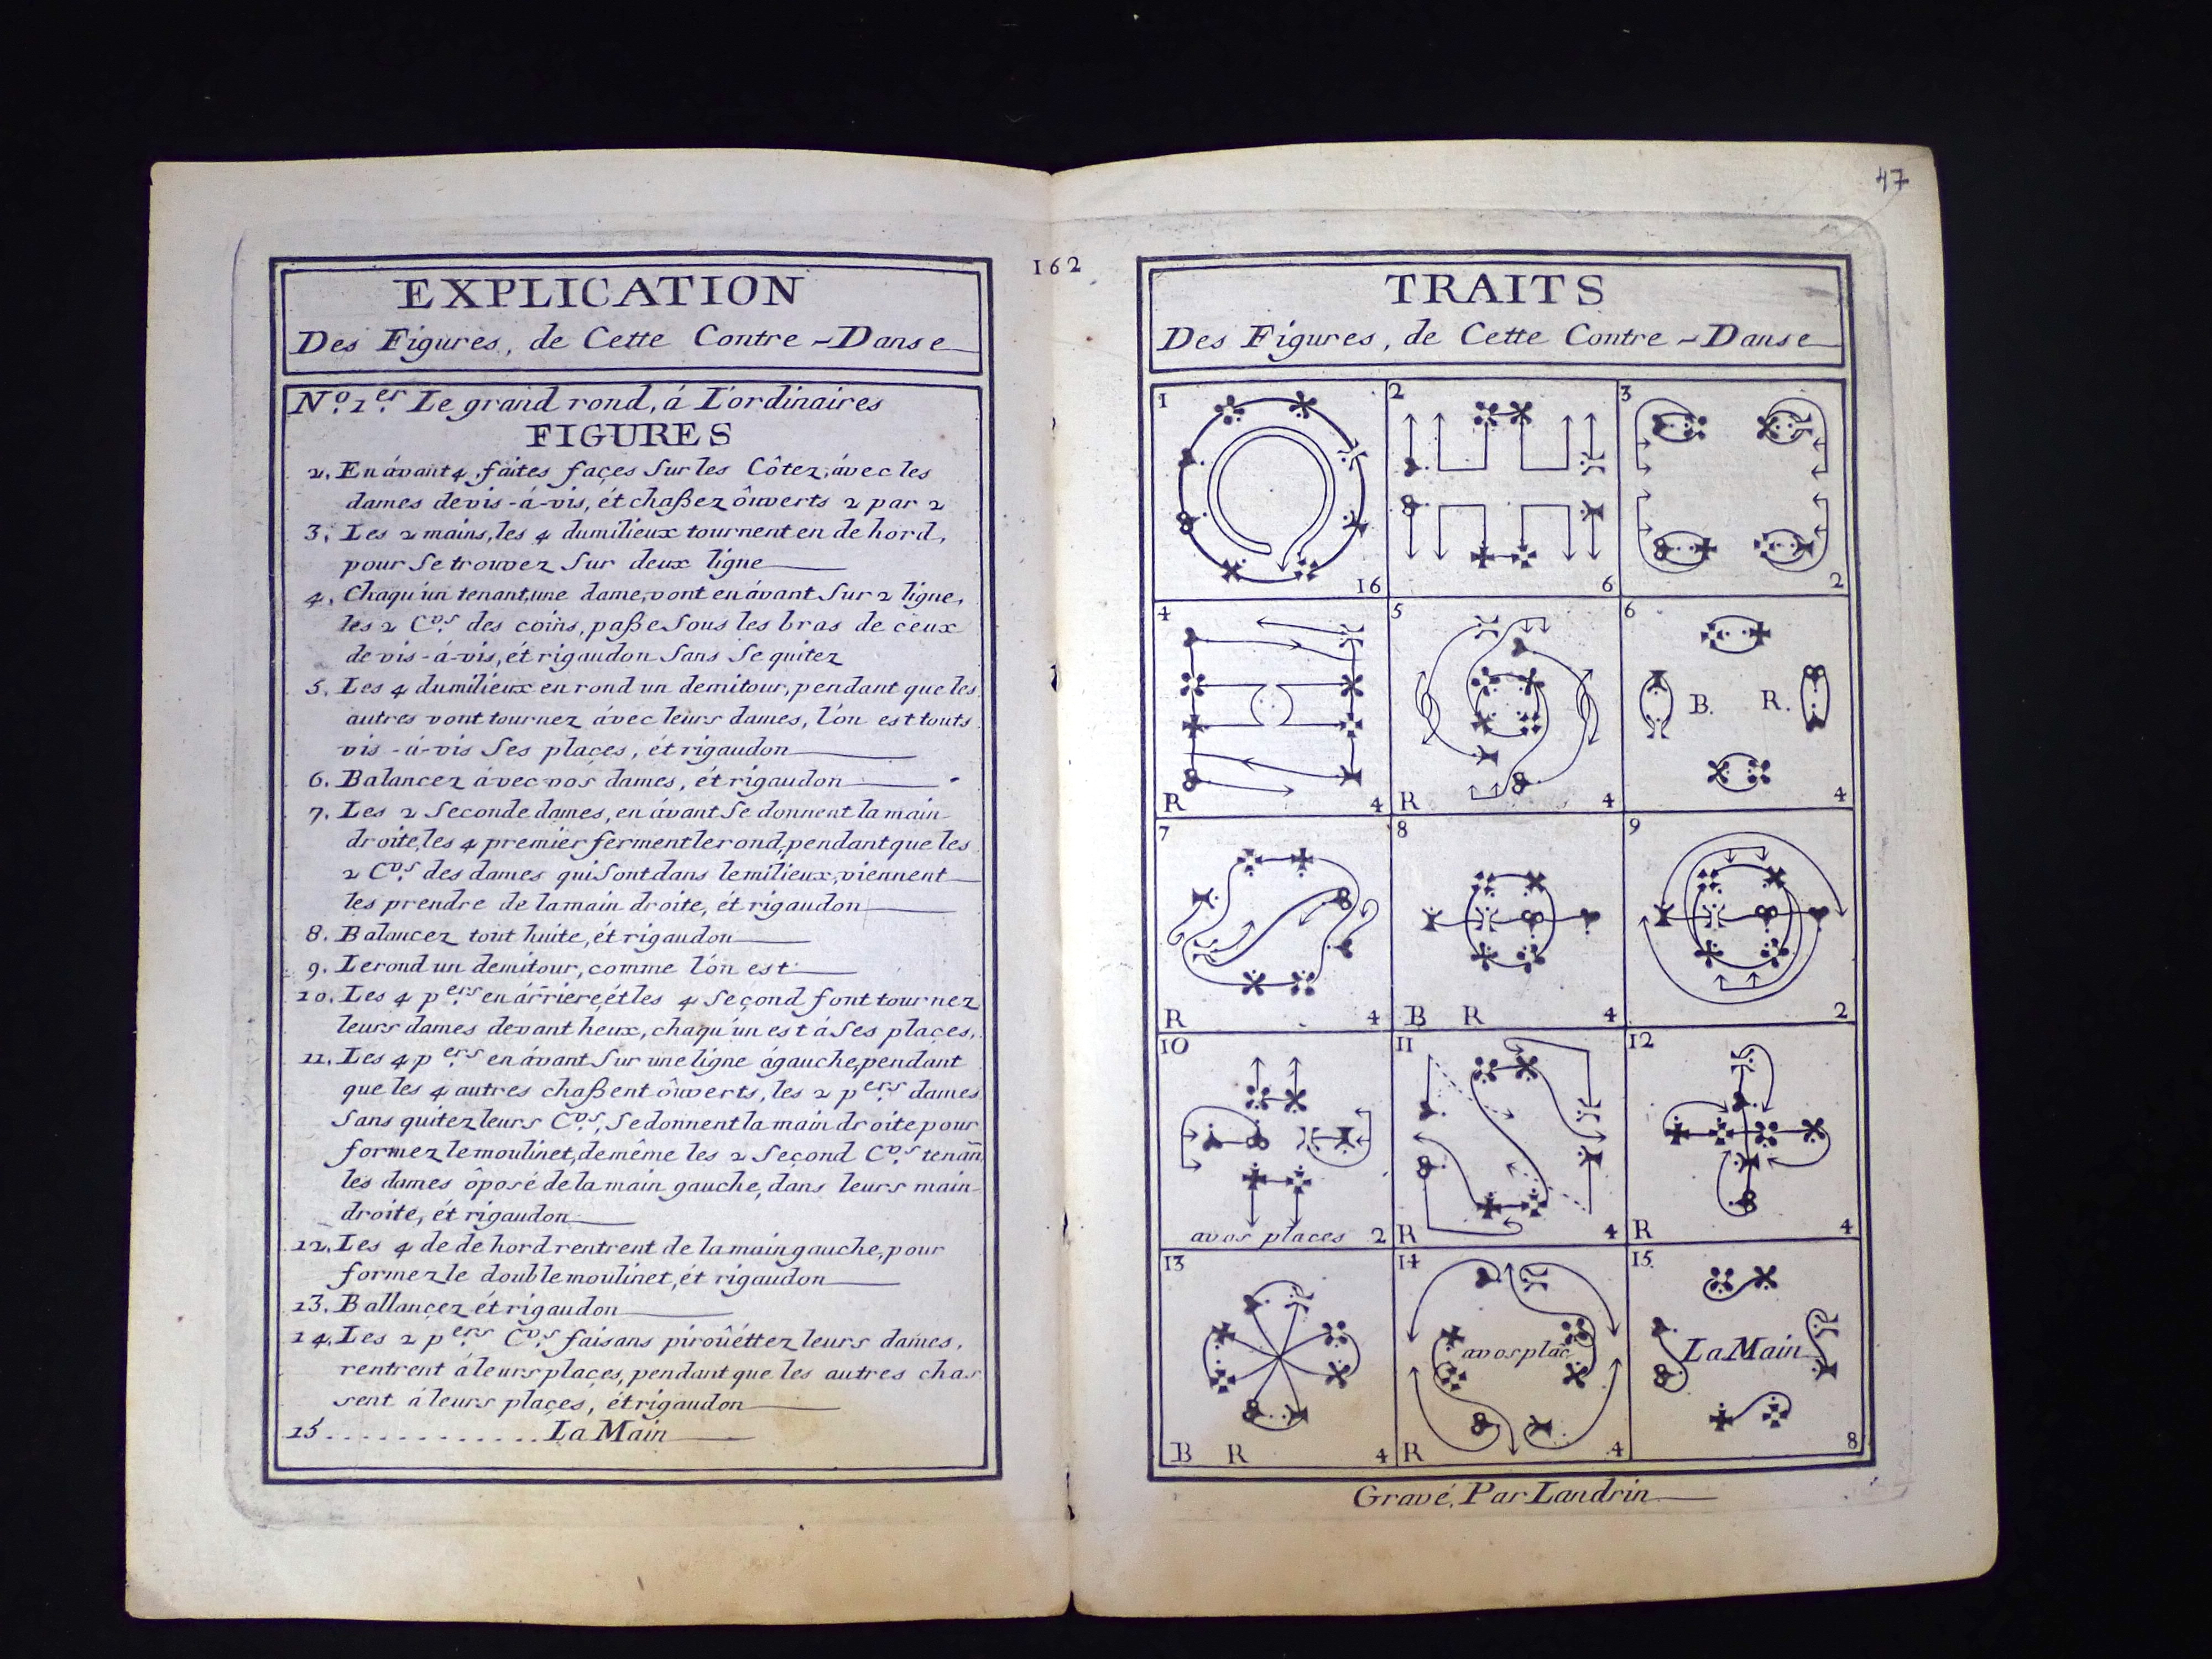 47
162
EXPLICATION
Des Figures, de Cette Contre-Danse
N.º 1.er Le grand rond, á L'ordinaires
FIGURES
2. En ávant 4, faites façes Sur les Côtez, ávec les
dames devis-á-vis, ét chaßez ôuverts 2 par 2
3. Les 2 mains, les 4 dumilieux tournent en de hord,
pour Se trouvez Sur deux ligne
4. Chaqu'un tenant, une dame, vont en ávant Sur 2 ligne,
les 2 C.vrs des coins, paße Sous les bras de ceux
de vis-á-vis, ét rigaudon Sans Se quitez
5. Les 4 dumilieux en rond un demitour, pendant que les
autres vont tournez ávec leurs dames, l'on est touts
vis-á-vis Ses plaçes, ét rigaudon
6. Balancez ávec vos dames, ét rigaudon
7. Les 2 Seconde dames, en ávant Se donnent la main
droite, les 4 premier ferment le rond, pendant que les
2 C.vrs des dames qui Sont dans le milieux, viennent
les prendre de la main droite, ét rigaudon
8. Balancez tout huite, ét rigaudon
9. Le rond un demitour, comme l'on est
10. Les 4 p.ers en árriere, ét les 4 Seçond font tournez
leurs dames devant heux, chaqu'un est á Ses plaçes,
11. Les 4 p.ers en ávant Sur une ligne ágauche, pendant
que les 4 autres chaßent ôuverts, les 2 p.ers dames
Sans quitez leurs C.vrs, Se donnent la main droite pour
formez le moulinet, de même les 2 Seçond C.vrs tenan̄
les dames ôposé de la main gauche, dans leurs main
droite, ét rigaudon
12. Les 4 de de hord rentrent de la main gauche, pour
formez le double moulinet, ét rigaudon
13. Ballançez ét rigaudon
14. Les 2 p.ers C.vrs faisans pirôuéttez leurs dames,
rentrent á leurs plaçes, pendant que les autres chas
sent á leurs plaçes, ét rigaudon
15 ............. La Main
TRAITS
Des Figures, de Cette Contre-Danse
1
16
2
6
3
2
4
R 4
5
R 4
6
B. R.
4
7
R 4
8
B R 4
9
2
10
avos places 2
11
R 4
12
R 4
13
B R 4
14
avos plac
R 4
15.
La Main
8
Gravé, Par Landrin